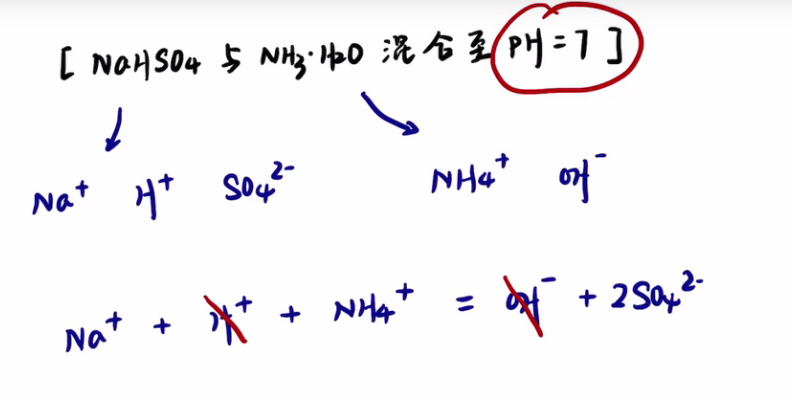 [ NaHSO4 与 NH3·H2O 混合至 PH=7 ]
Na+ H+ SO4²⁻ NH4+ OH⁻
Na+ + H+ + NH4+ = OH⁻ + 2SO4²⁻